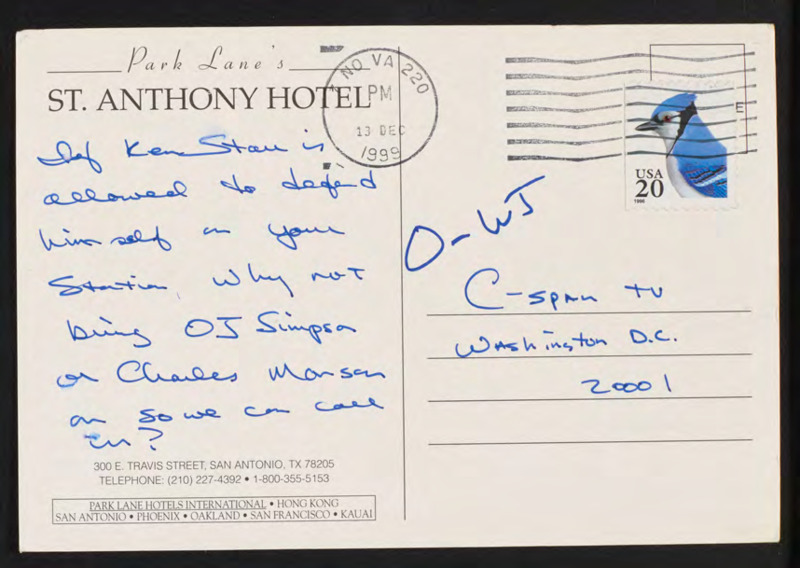 Park Lane's
ST. ANTHONY HOTEL
If Ken Starr is
allowed to defend
himself on your
Station, Why not
bring OJ Simpson
or Charles Manson
on so we can call
in?
300 E. TRAVIS STREET, SAN ANTONIO, TX 78205
TELEPHONE: (210) 227-4392 • 1-800-355-5153
PARK LANE HOTELS INTERNATIONAL • HONG KONG
SAN ANTONIO • PHOENIX • OAKLAND • SAN FRANCISCO • KAUAI
NO VA 220
PM
13 DEC
1999
E
USA
20
O-WJ
C-span TV
Washington D.C.
20001